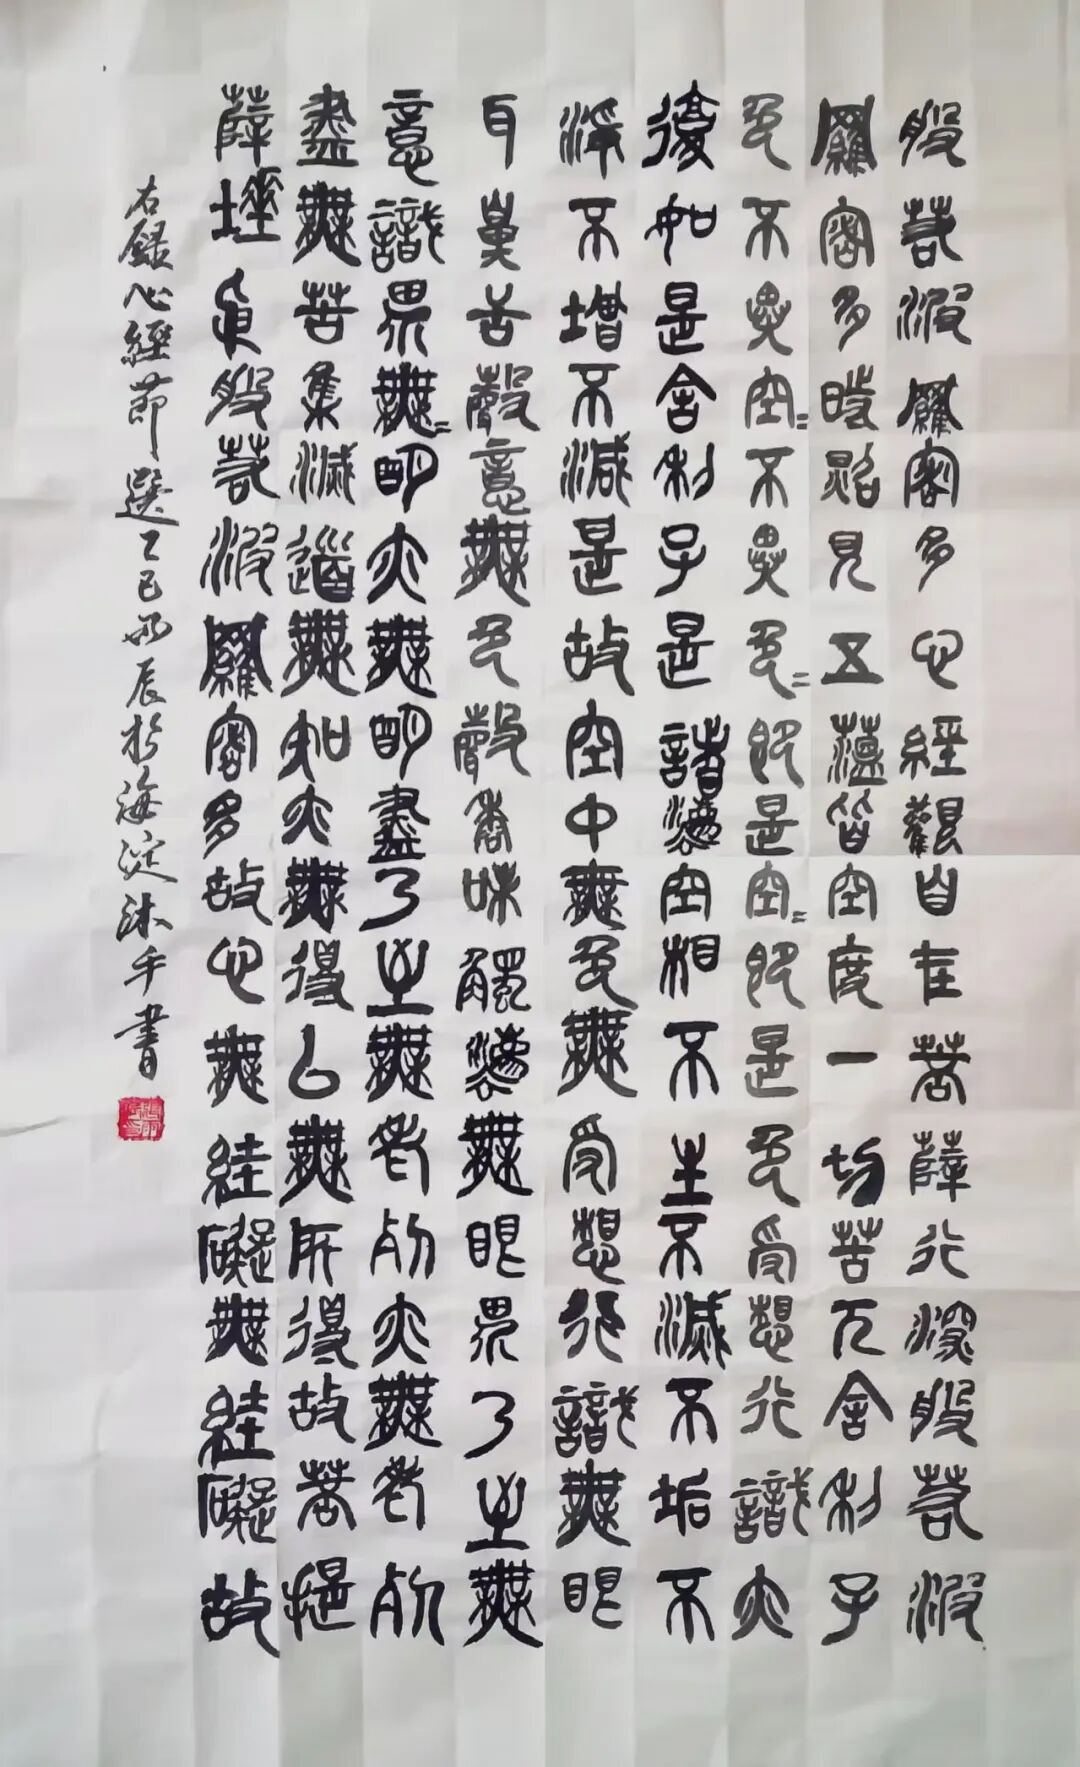 般若波羅密多心經觀自在菩薩行深般若波
羅密多時照見五蘊皆空度一切苦厄舍利子
色不異空=不異色=即是空=即是色受想行識亦
復如是舍利子是諸灋空相不生不滅不垢不
淨不增不減是故空中無色無受想行識無眼
耳鼻舌聲意無色聲香味觸灋無眼界乃至無
意識界無=明亦無明盡乃至無老死亦無老死
盡無苦集滅道無知亦無得以無所得故菩提
薩埵般若波羅密多故心無絓礙無絓礙故
右錄心經節選乙巳丙辰於海淀沐手書